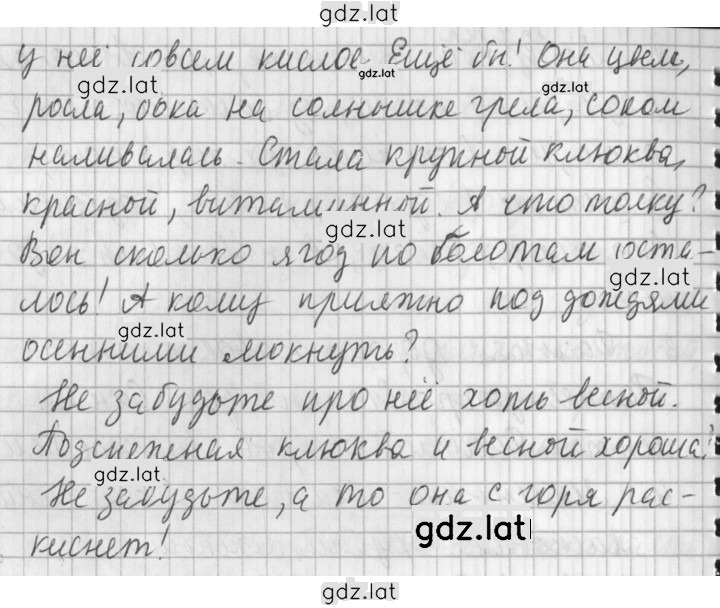 gdz.lat
у неё совсем кислое. Ещё бы! Она цвела,
gdz.lat
gdz.lat
gdz.lat
росла, бока на солнышке грела, соком
наливалась. Стала крупной клюква,
красной, витаминной. А что толку?
gdz.lat
Вон сколько ягод по болотам оста-
gdz.lat
лось! А кому приятно под дождями
gdz.lat
осенними мокнуть?
Не забудьте про неё хоть весной.
Подснежная клюква и весной хороша!
gdz.lat
Не забудьте, а то она с горя рас-
gdz.lat
киснет!
gdz.lat